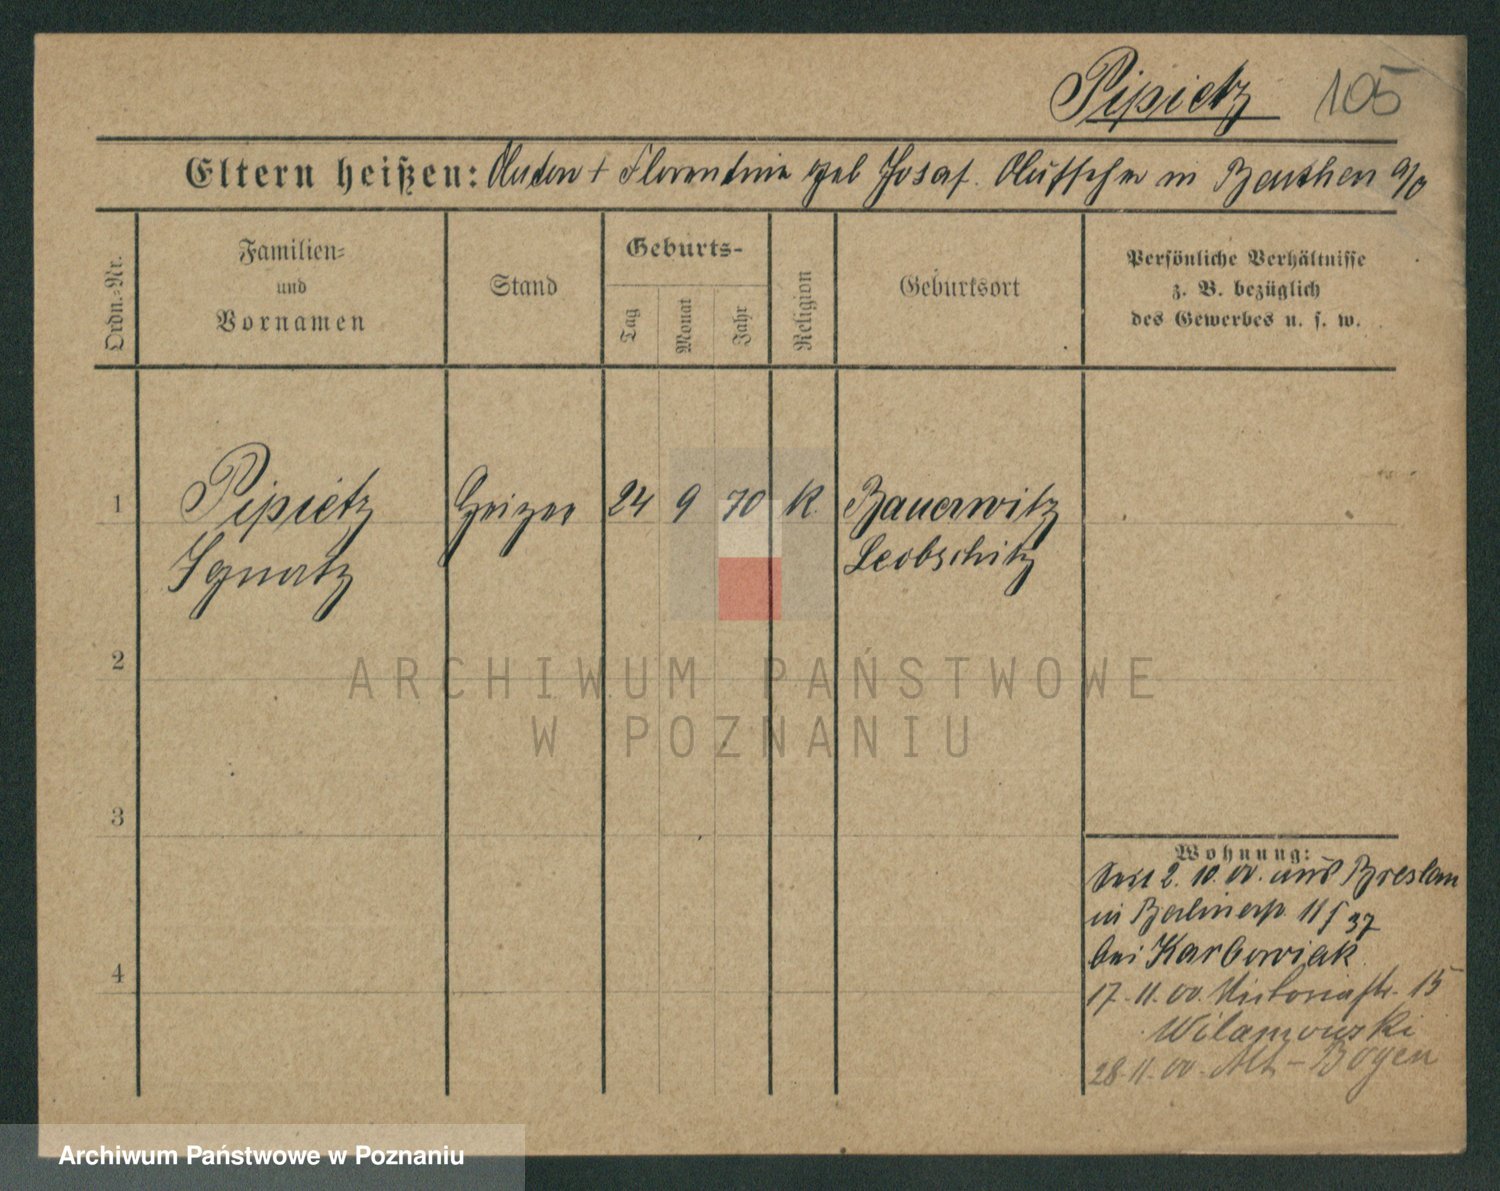 Pipietz 105
Eltern heißen: Anton + Florentine geb Josaf. in Beuthen o/o
Ordn.-Nr.
Familien-
und
Vornamen
Stand
Geburts-
Tag
Monat
Jahr
Religion
Geburtsort
Persönliche Verhältnisse
z. B. bezüglich
des Gewerbes u. s. w.
1 Pipietz Heizer 24 9 70 K. Bauerwitz
Ignatz Leobschitz
2
ARCHIWUM PAŃSTWOWE
W POZNANIU
3
Wohnung:
2. 10. 00. aus Breslau
in Berlinerstr. 11 37
bei Karbowiak
17. 11. 00. Victoriastr. 15
Wilamowski
28. 11. 00. Alt-Bogen
4
Archiwum Państwowe w Poznaniu